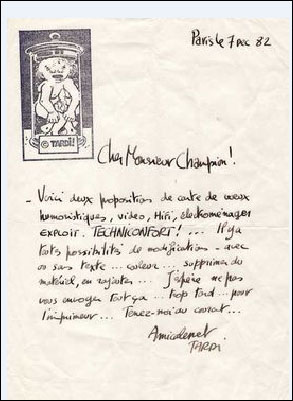 Paris le 7 Dec 82
© TARDI!
Cher Monsieur Champion!
- Voici deux proposition de carte de voeux
humoristiques, video, Hifi, électroménager
EXPLOIT. TECHNICONFORT!... Il y a
toute possibilités de modifications - avec
ou sans texte... couleur... supprimer du
matériel, en rajouter... J'espère ne pas
vous envoyer tout ça... trop tard... pour
l'imprimeur... Tenez-moi au courant...
Amicalement
TARDI